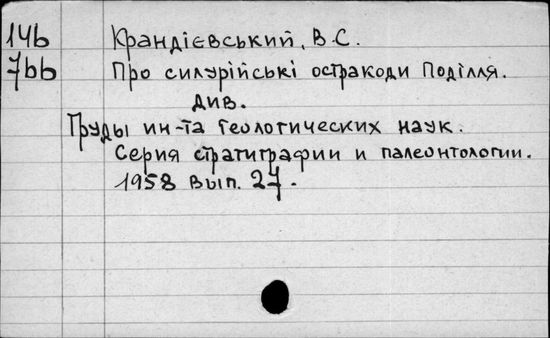 14b Крандієвський, В.С.
7bb Про силурійські остракоди Поділля.
див.
Труды ин-та геологических наук.
Серия стратиграфии и палеонтологии.
1958 вып. 27.